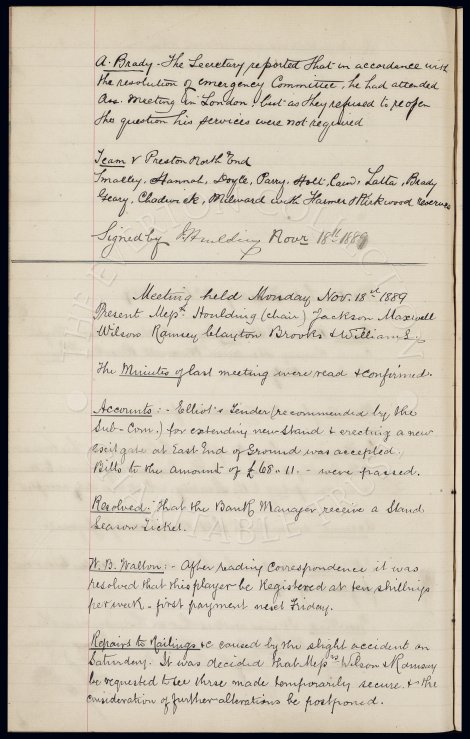 A. Brady - The Secretary reported that in accordance with
the resolution of emergency Committee, he had attended
Ass. Meeting in London, but as they refused to reopen
the question his services were not required
Team v Preston North End
Smalley, Hannah, Doyle, Parry, Holt, Cain, Latta, Brady
Geary, Chadwick, Milward with Farmer & Kirkwood reserves
Signed by J Houlding Novr 18th 1889
Meeting held Monday Nov. 18th 1889
Present Messrs Houlding (chair) Jackson Maxwell
Wilson Ramsey Clayton Brooks & Williams.
The Minutes of last meeting were read & confirmed.
Accounts: - Elliot's Tender (recommended by the
Sub-Com.) for extending new Stand & erecting a new
exit gate at East End of Ground was accepted.
Bills to the amount of £68 " 11. - were passed.
Resolved: That the Bank Manager receive a Stand
Season Ticket.
W. B. Walton: - After reading correspondence it was
resolved that this player be Registered at ten shillings
per week - first payment next Friday.
Repairs to Railings &c caused by the slight accident on
Saturday. It was decided that Messrs Wilson & Ramsay
be requested to see these made temporarily secure & the
consideration of further alterations be postponed.